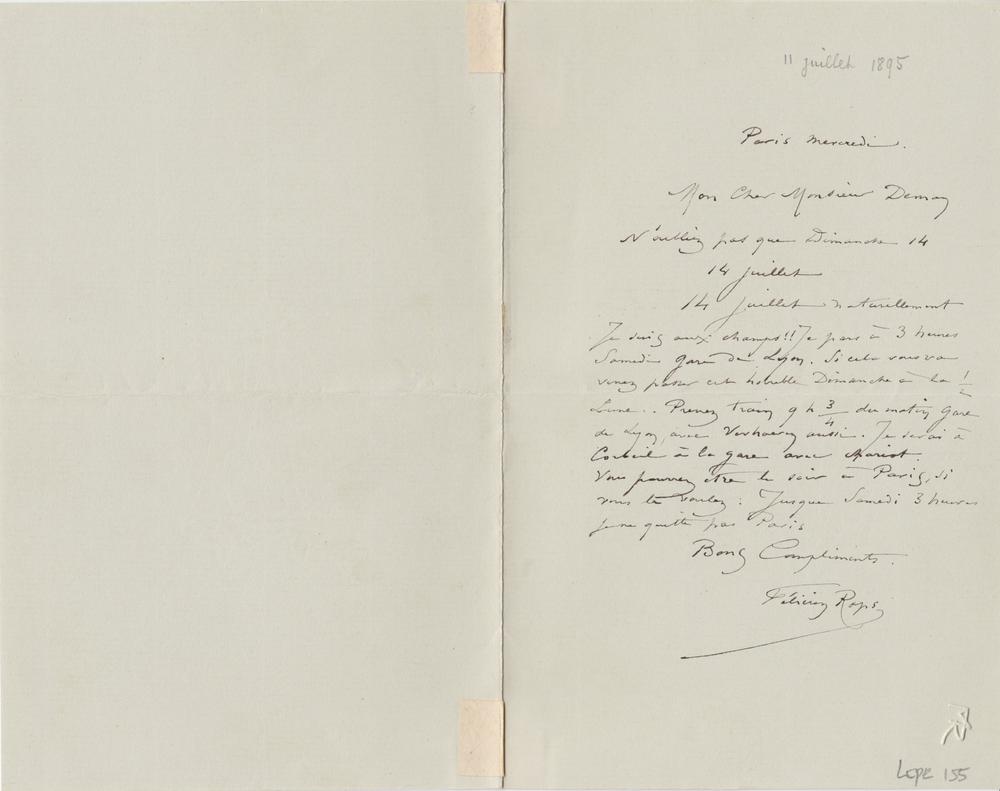 11 juillet 1895
Paris mercredi.
Mon Cher Monsieur Deman
N'oubliez pas que Dimanche 14
14 juillet
14 juillet naturellement
Je suis aux champs!! Je pars à 3 heures
Samedi Gare de Lyon. Si cela vous va
venez passer cet horrible Dimanche à la 1/2
Lune.. Prenez train 9 h 3/4 du matin Gare
de Lyon, avec Verhaeren aussi. Je serai à
Corbeil à la gare avec
Vous pourrez être le soir à Paris, si
vous le voulez : Jusque Samedi 3 heures
je ne quitte pas Paris
Bons Compliments.
Félicien Rops
LEpr 155